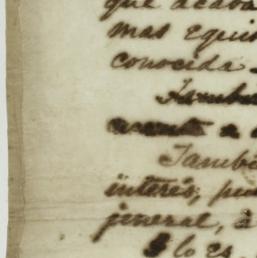 que acaba
mas equi
conocida
Tambi
a
Tambi
interés, pu
jeneral, á
lo es.